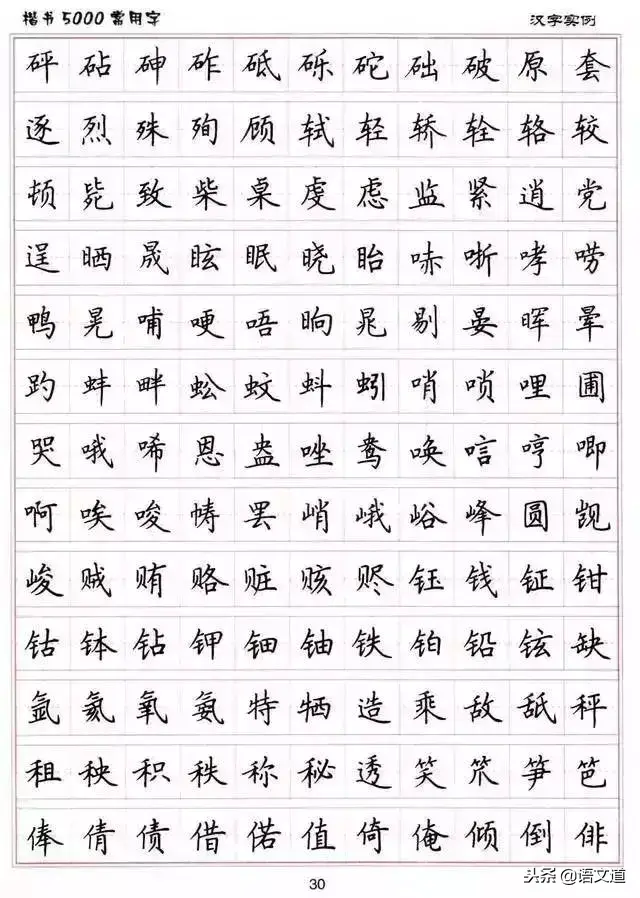 楷书5000常用字 汉字实例
砰 砧 砷 砟 砥 砾 砣 础 破 原 套
逐 烈 殊 殉 顾 轼 轻 轿 辁 辂 较
顿 毙 致 柴 桌 虔 虑 监 紧 逍 党
逞 晒 晟 眩 眠 晓 眙 哧 哳 哮 唠
鸭 晃 哺 哽 唔 晌 晁 剔 晏 晖 晕
趵 蚌 畔 蚣 蚊 蚪 蚓 哨 唢 哩 圃
哭 哦 唏 恩 盎 唑 鸯 唤 唁 哼 唧
啊 唉 唆 帱 罢 峭 峨 峪 峰 圆 觊
峻 贼 贿 赂 赃 赅 赆 钰 钱 钲 钳
钴 钵 钻 钾 钿 铀 铁 铂 铅 铉 缺
氩 氦 氧 氨 特 牺 造 乘 敌 舐 秤
租 秧 积 秩 称 秘 透 笑 笊 笋 笆
俸 倩 债 借 偌 值 倚 俺 倾 倒 俳
30
头条@语文道